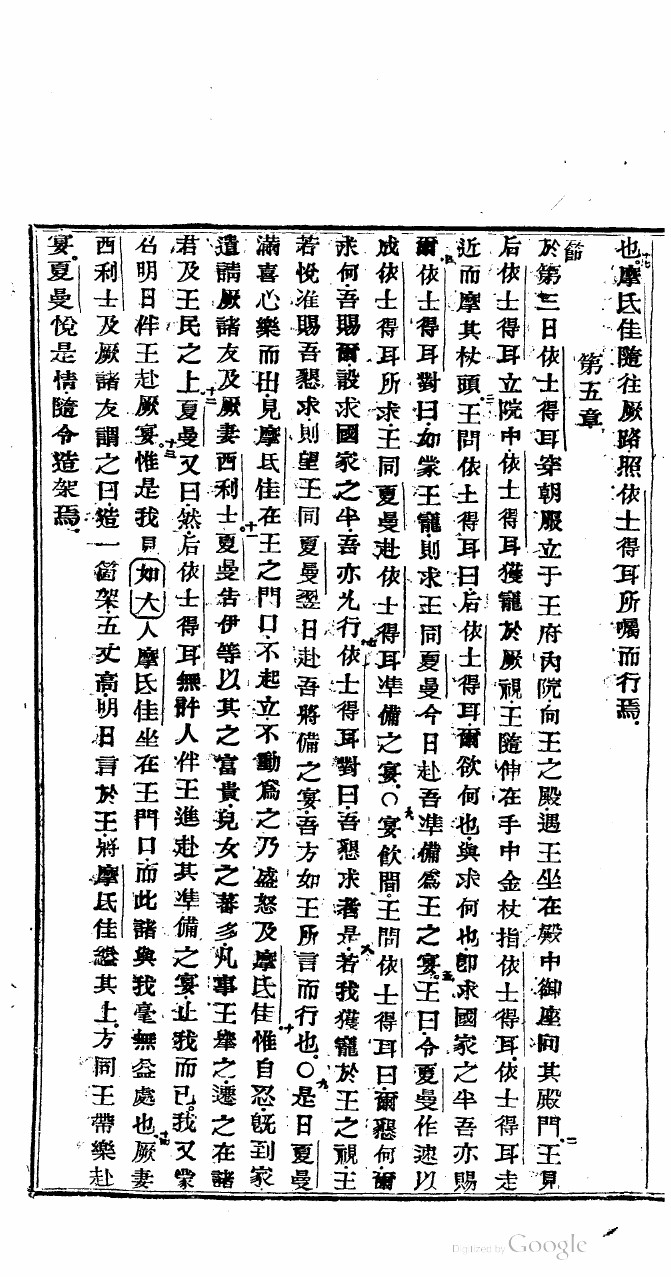 也。摩氏佳隨往厥路照依士得耳所囑而行焉。
十七
第五章
節
於第三日依士得耳穿朝服立于王府內院向王之殿遇王坐在殿中御座向其殿門。王見
二
后依士得耳立院中依士得耳獲寵於厥視王隨伸在手中金杖指依士得耳依士得耳走
近而摩其杖頭。王問依士得耳曰后依士得耳爾欲何也與求何也即求國家之半吾亦賜
三
爾依士得耳對曰如蒙王寵則求王同夏曼今日赴吾準備為王之宴。王曰令夏曼作速以
四 五
成依士得耳所求王同夏曼赴依士得耳準備之宴。〇宴飲間。王問依士得耳曰爾懇何爾
六
求何吾賜爾設求國家之半吾亦允行依士得耳對曰吾懇求者是若我獲寵於王之視王
七 八
若悅准賜吾懇求則望王同夏曼翌日赴吾將備之宴吾方如王所言而行也。〇是日夏曼
九
滿喜心樂而出見摩氏佳在王之門口不起立不動為之乃盛怒及摩氏佳惟自忍既到家
十
遣請厥諸友及厥妻西利士夏曼告伊等以其之富貴兒女之蕃多凡事王舉之遷之在諸
十一
君及王民之上夏曼又曰然后依士得耳無許人伴王進赴其準備之宴止我而已。我又蒙
十二
召明日伴王赴厥宴惟是我見如大人摩氏佳坐在王門口而此諸與我毫無益處也厥妻
十三 十四
西利士及厥諸友謂之曰造一箇架五丈高明日言於王將摩氏佳縊其上。方同王帶樂赴
宴。夏曼悅是情隨令造架焉。
Digitized by Google